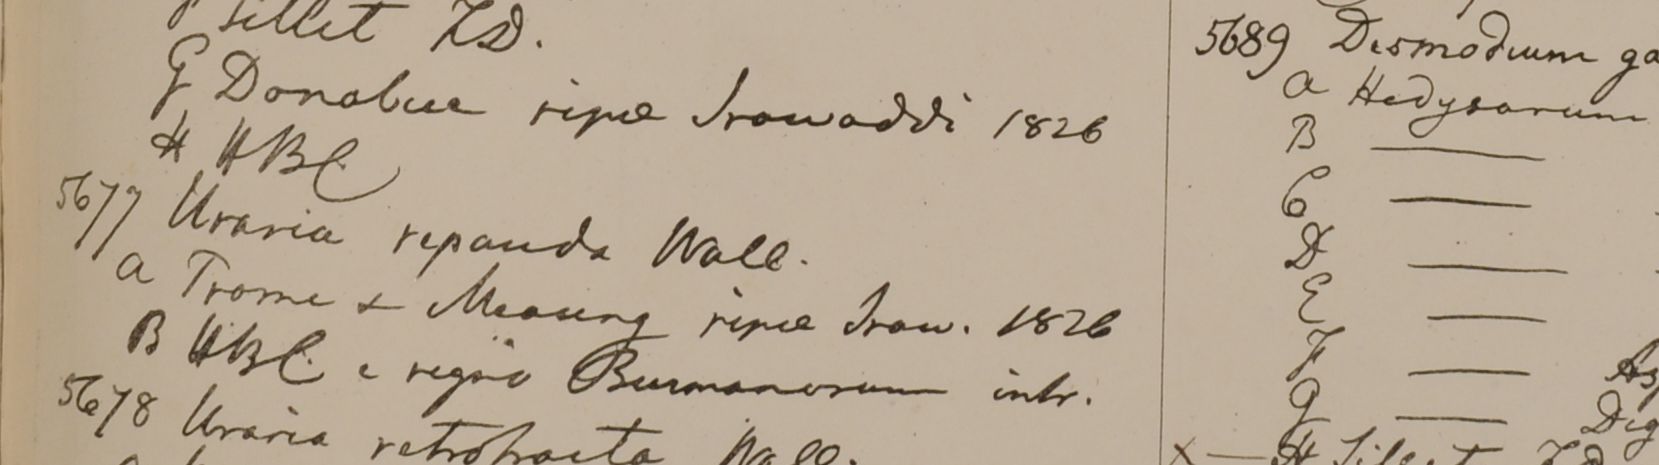 F Sillet FD.
G Donabue ripæ Irawaddi 1826
H HBC
5677 Uraria repanda Wall.
a Prome & Meaung ripæ Iraw. 1826
B HBC e regno Burmanorum intr.
5678 Uraria retrofracta Wall.
5689 Desmodium ga
a Hedysarum
B ——
C ——
D ——
E ——
F —— As
G —— Dig
x — H Sillet FD